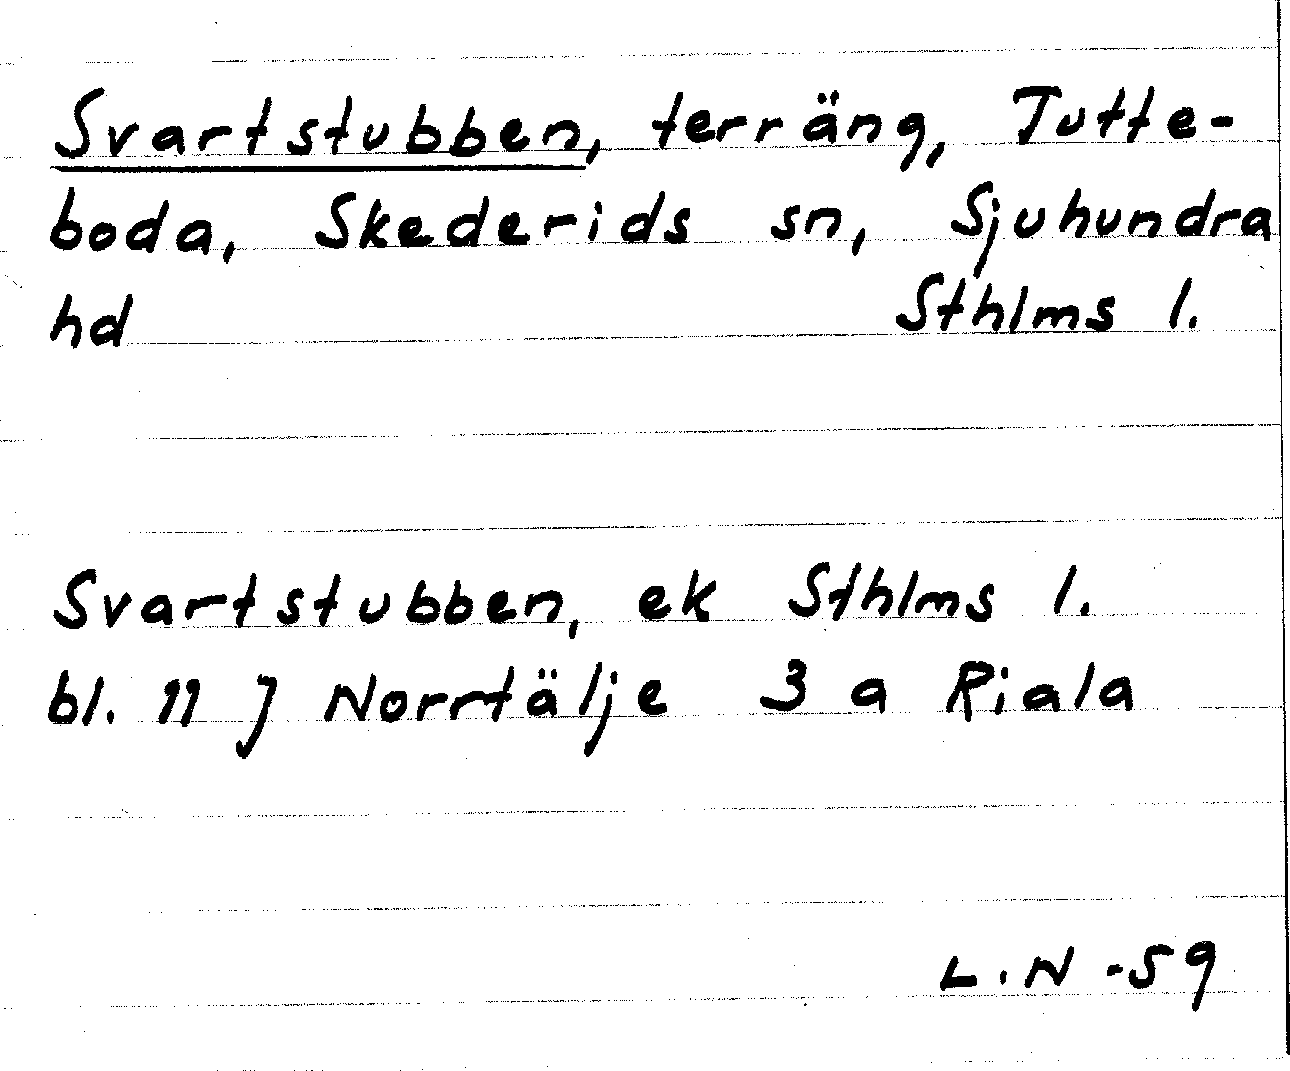 Svartstubben, terräng, Tutte-
boda, Skederids sn, Sjuhundra
hd Sthlms l.
Svartstubben, ek Sthlms l.
bl. 11 J Norrtälje 3 a Riala
L.N -59